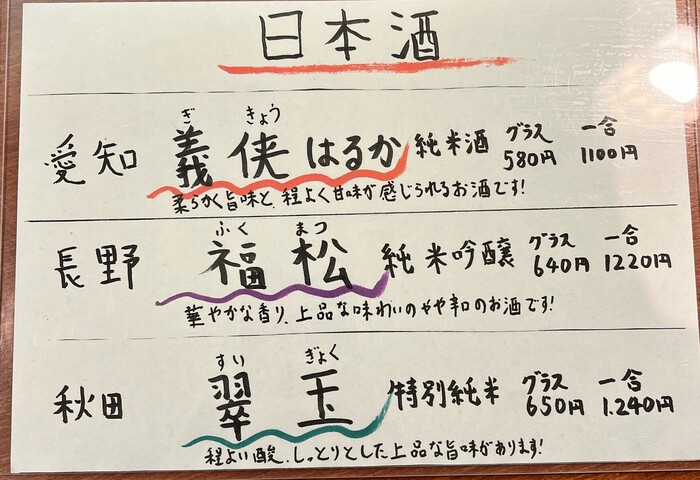 日本酒
ぎ きょう
愛知 義侠はるか 純米酒 グラス 580円 一合 1100円
柔らかく旨味と、程よく甘味が感じられるお酒です!
ふく まつ
長野 福松 純米吟醸 グラス 640円 一合 1220円
華やかな香り、上品な味わいのやや辛口のお酒です!
すい ぎょく
秋田 翠玉 特別純米 グラス 650円 一合 1.240円
程よい酸、しっとりとした上品な旨味があります!